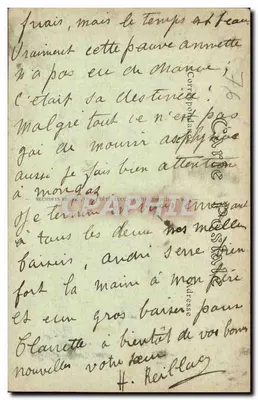 frais, mais le temps est beau
Vraiment cette pauve annette
n'a pas eu de chance ;
c'était sa destinée !
Malgré tout ce n'est pas
gai de mourir asphyxiée
aussi je fais bien attention
à mon gaz
Je termine en vous envoyant
à tous les deux nos meilleurs
baisers, andré serre bien
fort la main à mon père
et un gros baiser pour
Clairette à bientôt de vos bonnes
nouvelles votre sœur
H.
Carte Postale
Correspondance
Adresse
CPAPHIL